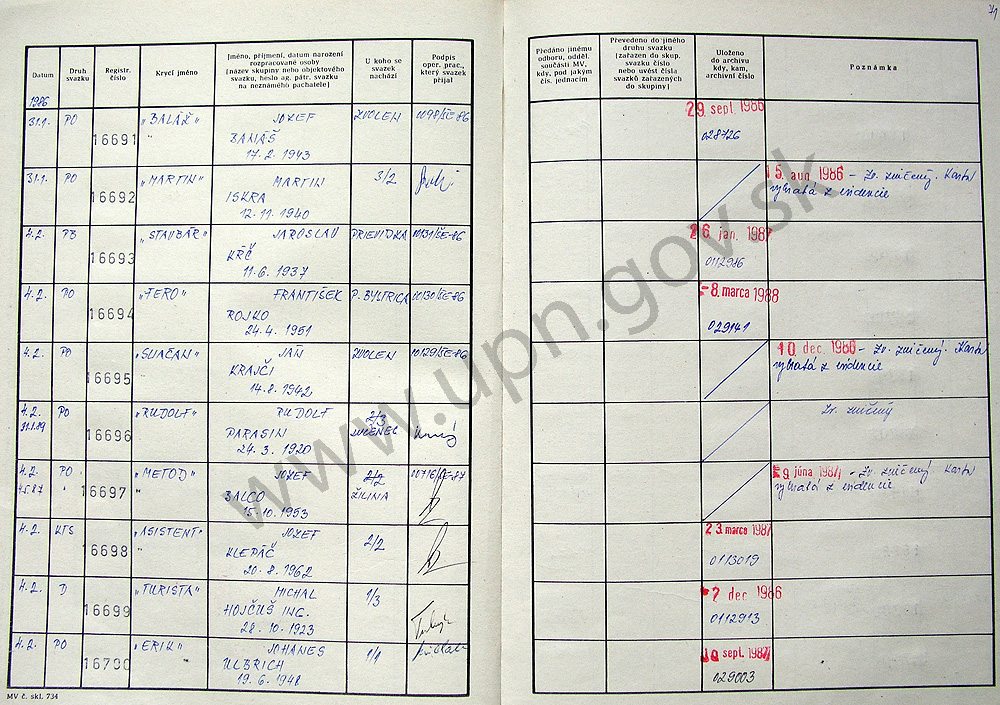 71
Datum
Druh svazku
Registr. číslo
Krycí jméno
Jméno, příjmení, datum narození
rozpracované osoby
(název skupiny nebo objektového
svazku, heslo ag. pátr. svazku
na neznámého pachatele)
U koho se
svazek
nachází
Podpis
oper. prac.,
který svazek
přijal
Předáno jinému
odboru, odděl.
součásti MV,
kdy, pod jakým
čís. jednacím
Převedeno do jiného
druhu svazku
(zařazen do skup.
svazku číslo
nebo uvést čísla
svazků zařazených
do skupiny)
Uloženo
do archivu
kdy, kam,
archivní číslo
Poznámka
1986
31.1. PO 16691 „BALÁŽ" JOZEF ZVOLEN 0098/SE-86 29. sept. 1986
BANÁŠ 028726
17. 2. 1943
31.1. PO 16692 „MARTIN" MARTIN 3/2 15. aug 1986 – Zv. zničený. Karta
ISKRA vybratá z evidencie
12. 11. 1940
4.2. PB 16693 „STAVBÁR" JAROSLAV PRIEVIDZA 0131/SE-86 26. jan. 1987
KŘČ 0112986
11. 6. 1937
4.2. PO 16694 „FERO" FRANTIŠEK P. BYSTRICA 0130/SE-86 -8. marca 1988
ROJKO 029141
24. 4. 1951
4.2. PO 16695 „SLIAČAN" JÁN ZVOLEN 0129/SE-86 10. dec. 1986 – Zv. zničený. Karta
KRAJČI vybratá z evidencie
14. 8. 1942
4.2. PO 16696 „RUDOLF" RUDOLF 2/3 Zv. zničený
31.1.89 PARASIN LUČENEC
24. 3. 1920
4.2. PO 16697 „METOD" JOZEF 2/2 00716/SE-87 -9. júna 1987 – Zv. zničený. Karta
4.5.87 BALCO ŽILINA vybratá z evidencie
15. 10. 1953
4.2. KTS 16698 „ASISTENT" JOZEF 2/2 23. marca 1987
KLEPÁČ 0113019
20. 8. 1962
4.2. D 16699 „TURISTA" MICHAL 1/3 -7. dec 1986
HOJČUŠ ING. 0112913
28. 10. 1923
4.2. PO 16700 „ERIK" JOHANES 1/1 10. sept. 1987
ULBRICH 029003
19. 6. 1948
MV č. skl. 734
www.upn.gov.sk